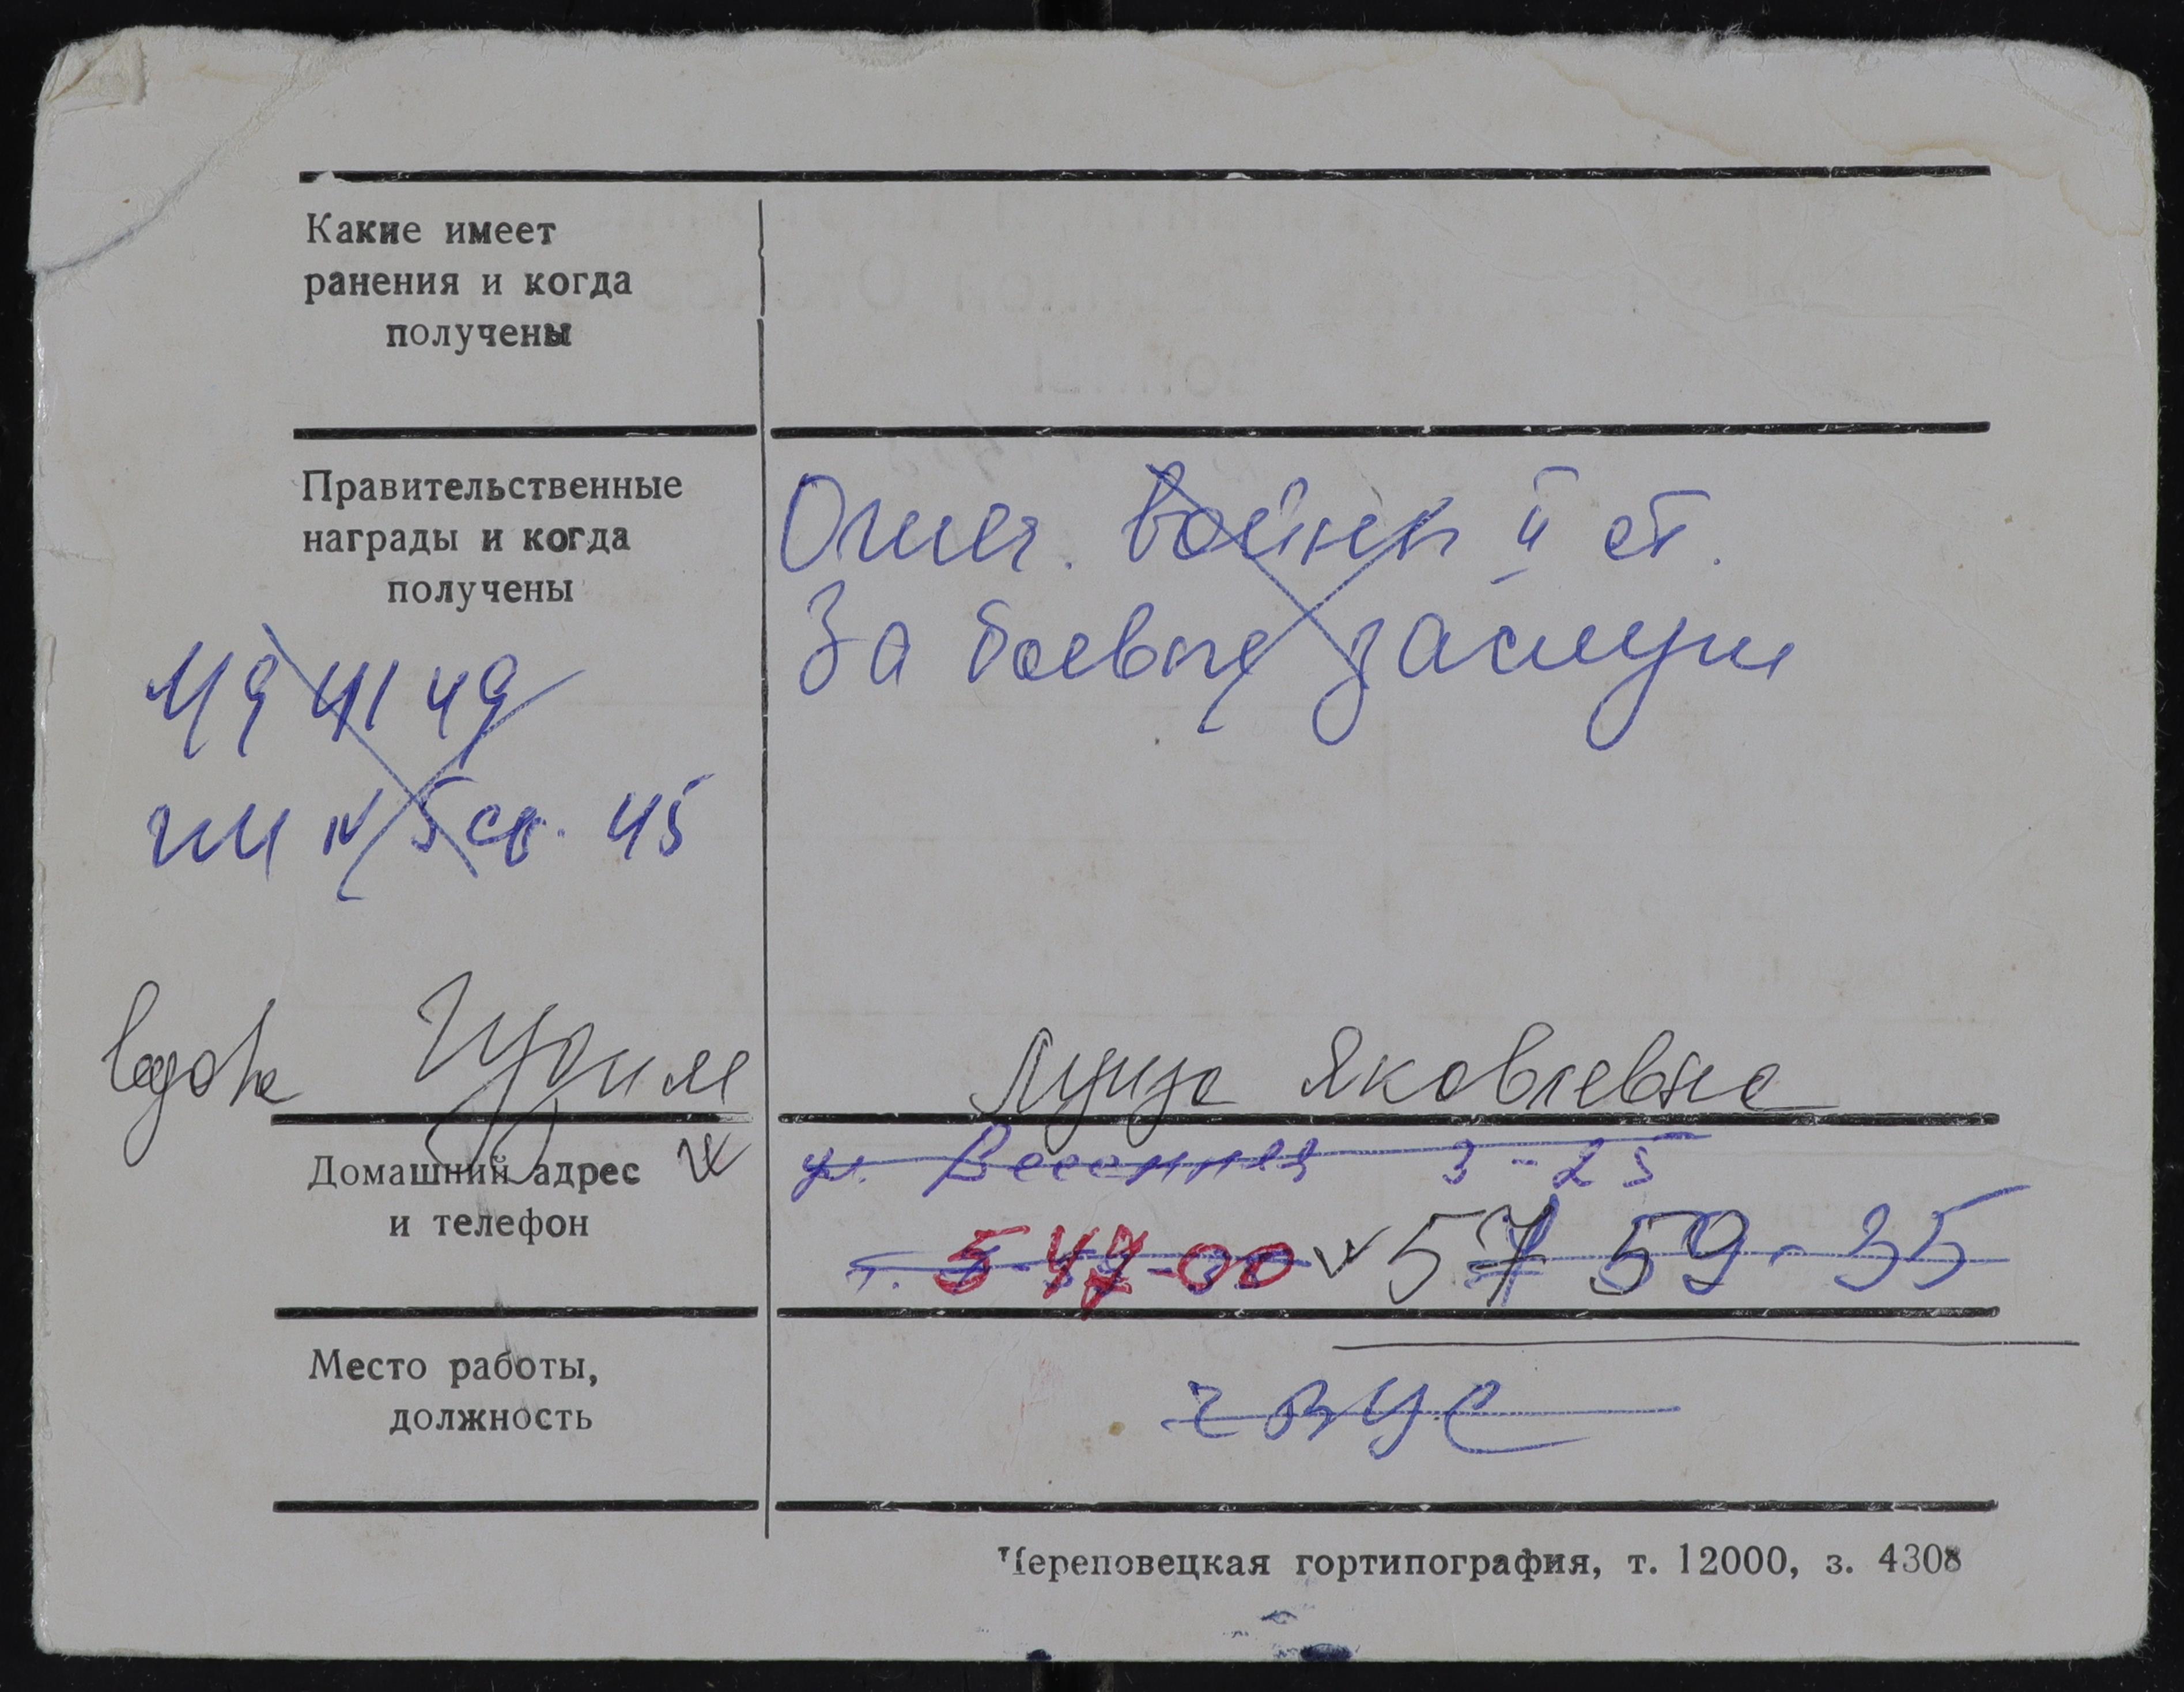 Какие имеет
ранения и когда
получены
Правительственные
награды и когда
получены
Отеч. войны II ст.
За боевые заслуги
45
вдова
Луиза Яковлевна
Домашний адрес
и телефон
ул. Весенняя 3-25
т. 5-47-00 57 59-35
Место работы,
должность
Череповецкая гортипография, т. 12000, з. 4308